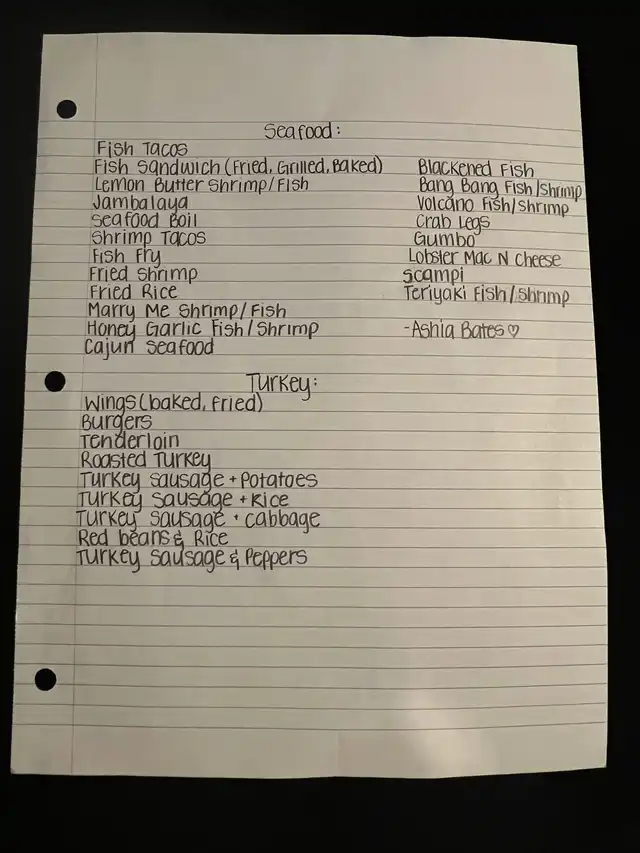 Seafood:
Fish Tacos
Fish Sandwich (Fried, Grilled, Baked)
Lemon Butter Shrimp/Fish
Jambalaya
Seafood Boil
Shrimp Tacos
Fish Fry
Fried Shrimp
Fried Rice
Marry Me Shrimp/Fish
Honey Garlic Fish/Shrimp
Cajun Seafood
Blackened Fish
Bang Bang Fish/Shrimp
Volcano Fish/Shrimp
Crab Legs
Gumbo
Lobster Mac N Cheese
Scampi
Teriyaki Fish/Shrimp
-Ashia Bates♡
Turkey:
Wings (baked, fried)
Burgers
Tenderloin
Roasted Turkey
Turkey Sausage + Potatoes
Turkey Sausage + Rice
Turkey Sausage + Cabbage
Red beans & Rice
Turkey Sausage & Peppers